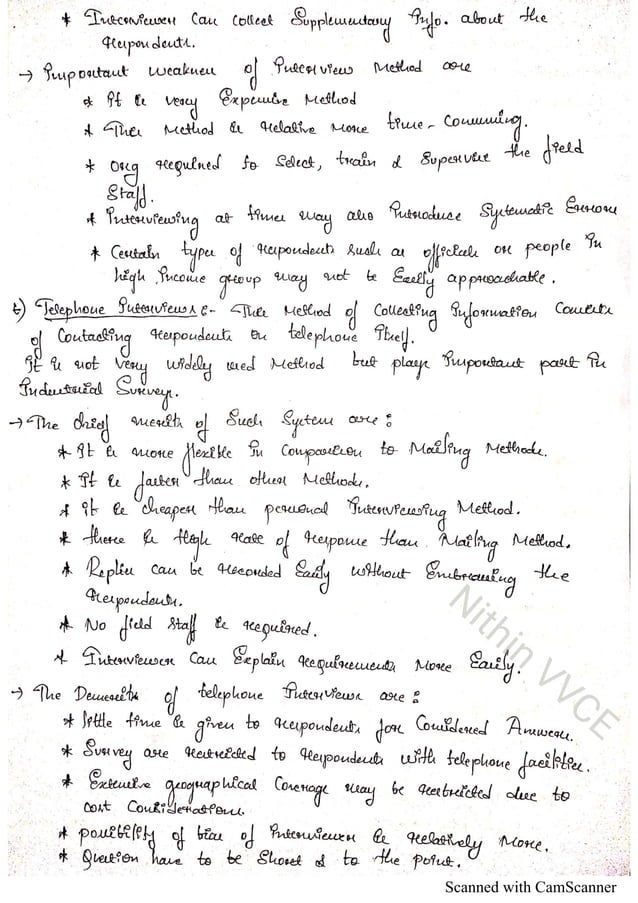 * Interviewer Can Collect Supplementary Info. about the
Respondents.
→ Important weakness of Interview Method are
* It is very Expensive Method
* This Method is Relative More time-Consuming.
* Org required to Select, train & Supervise the field
Staff.
* Interviewing at times may also Introduce Systematic Errors
* Certain types of respondents such as officials or people in
high Income group may not be Easily approachable.
b) Telephone Interviews :- This Method of Collecting Information Consists
of Contacting respondents on telephone Itself.
It is not very widely used Method but plays Important part in
Industrial Surveys.
→ The chief merits of Such System are :
* It is more flexible in Comparison to Mailing Methods.
* It is faster than other Methods.
* it is cheaper than personal Interviewing Method.
* there is High rate of response than Mailing Method.
* Replies can be recorded Easily without Embrassing the
Respondents.
* No field staff is required.
* Interviewer Can Explain requirements More Easily.
→ The Demerits of telephone Interviews are :
* little time is given to respondents for Considered Answers.
* Survey are restricted to respondents with telephone facilities.
* Extensive geographical Coverage may be restricted due to
cost Considerations.
* possibility of bias of Interviewer is relatively More.
* Question have to be Short & to the point.
Nithin VVCE
Scanned with CamScanner